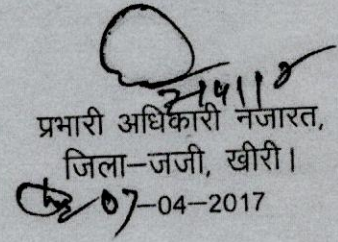 प्रभारी अधिकारी नजारत,
जिला-जजी, खीरी।
07-04-2017